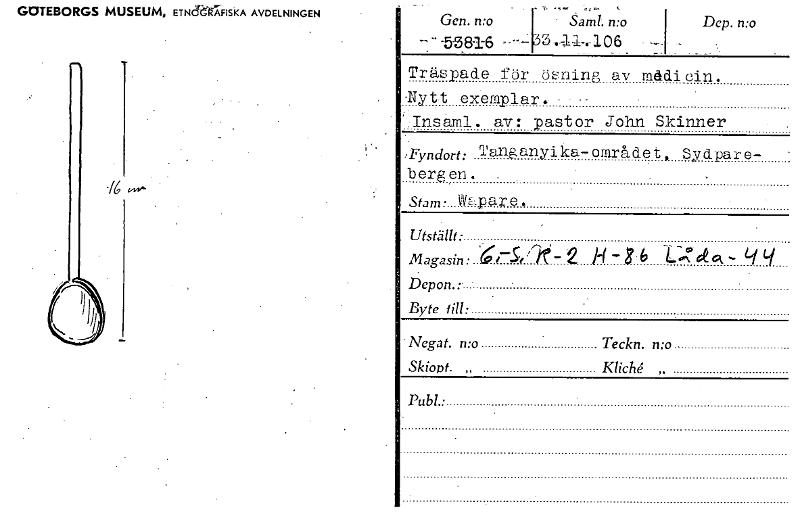 GÖTEBORGS MUSEUM, ETNOGRAFISKA AVDELNINGEN
16 cm
Gen. n:o Saml. n:o Dep. n:o
53816 33.11.106
Träspade för ösning av medicin.
Nytt exemplar.
Insaml. av: pastor John Skinner
Fyndort: Tanganyika-området, Sydpare-
bergen.
Stam: Wapare.
Utställt:
Magasin: G.-S. R-2 H-86 Låda-44
Depon.:
Byte till:
Negat. n:o Teckn. n:o
Skiopt. „ Kliché „
Publ.: